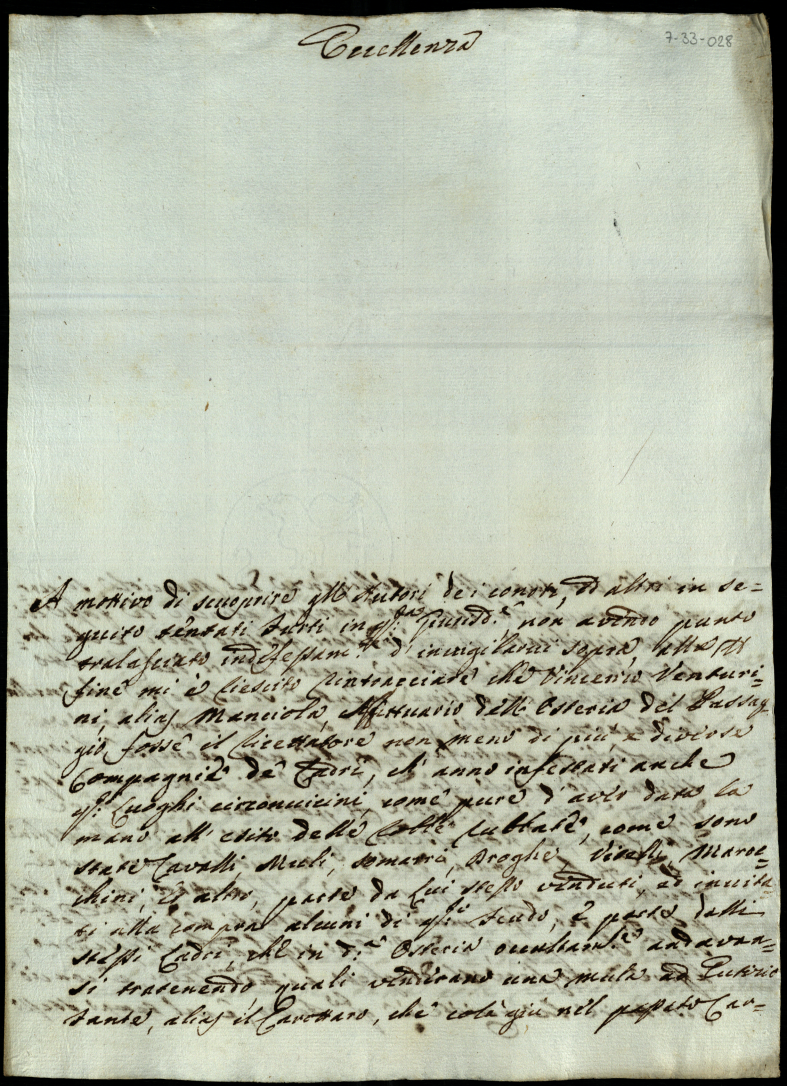 7-33-028
Eccellenza
A motivo di scuoprire gl'Autori dei conoti, ed altri in se=
guito tentati furti in q.sta Giurisd.e non avendo punto
tralasciato indefessam.te d'invigilarvi sopra, alla
fine mi è riescito rintracciare che Vincenzo Venturi=
ni, alias Manciola, Affittuario dell'Osteria del Passag
gio fosse il ricettatore non meno di più, e diverse
Compagnie de Ladri, ch'anno infestati anche
q.sti Luoghi circonvicini, come pure d'aver dato la
mano all'esito delle robbe rubbate, come sono
state Cavalli, Muli, Somarri, Droghe, Vitelli, Maroc=
chini, ed altro, parte da lui stesso venduti, ed invita
ti alla compra alcuni di q.sto Feudo, e parte dalli
stessi Ladri, che in d.a Osteria occultam.te andavan=
si trattenendo, quali venderano una mula ad
Sante, alias il Carottaro, che colà giù nel passato Car=